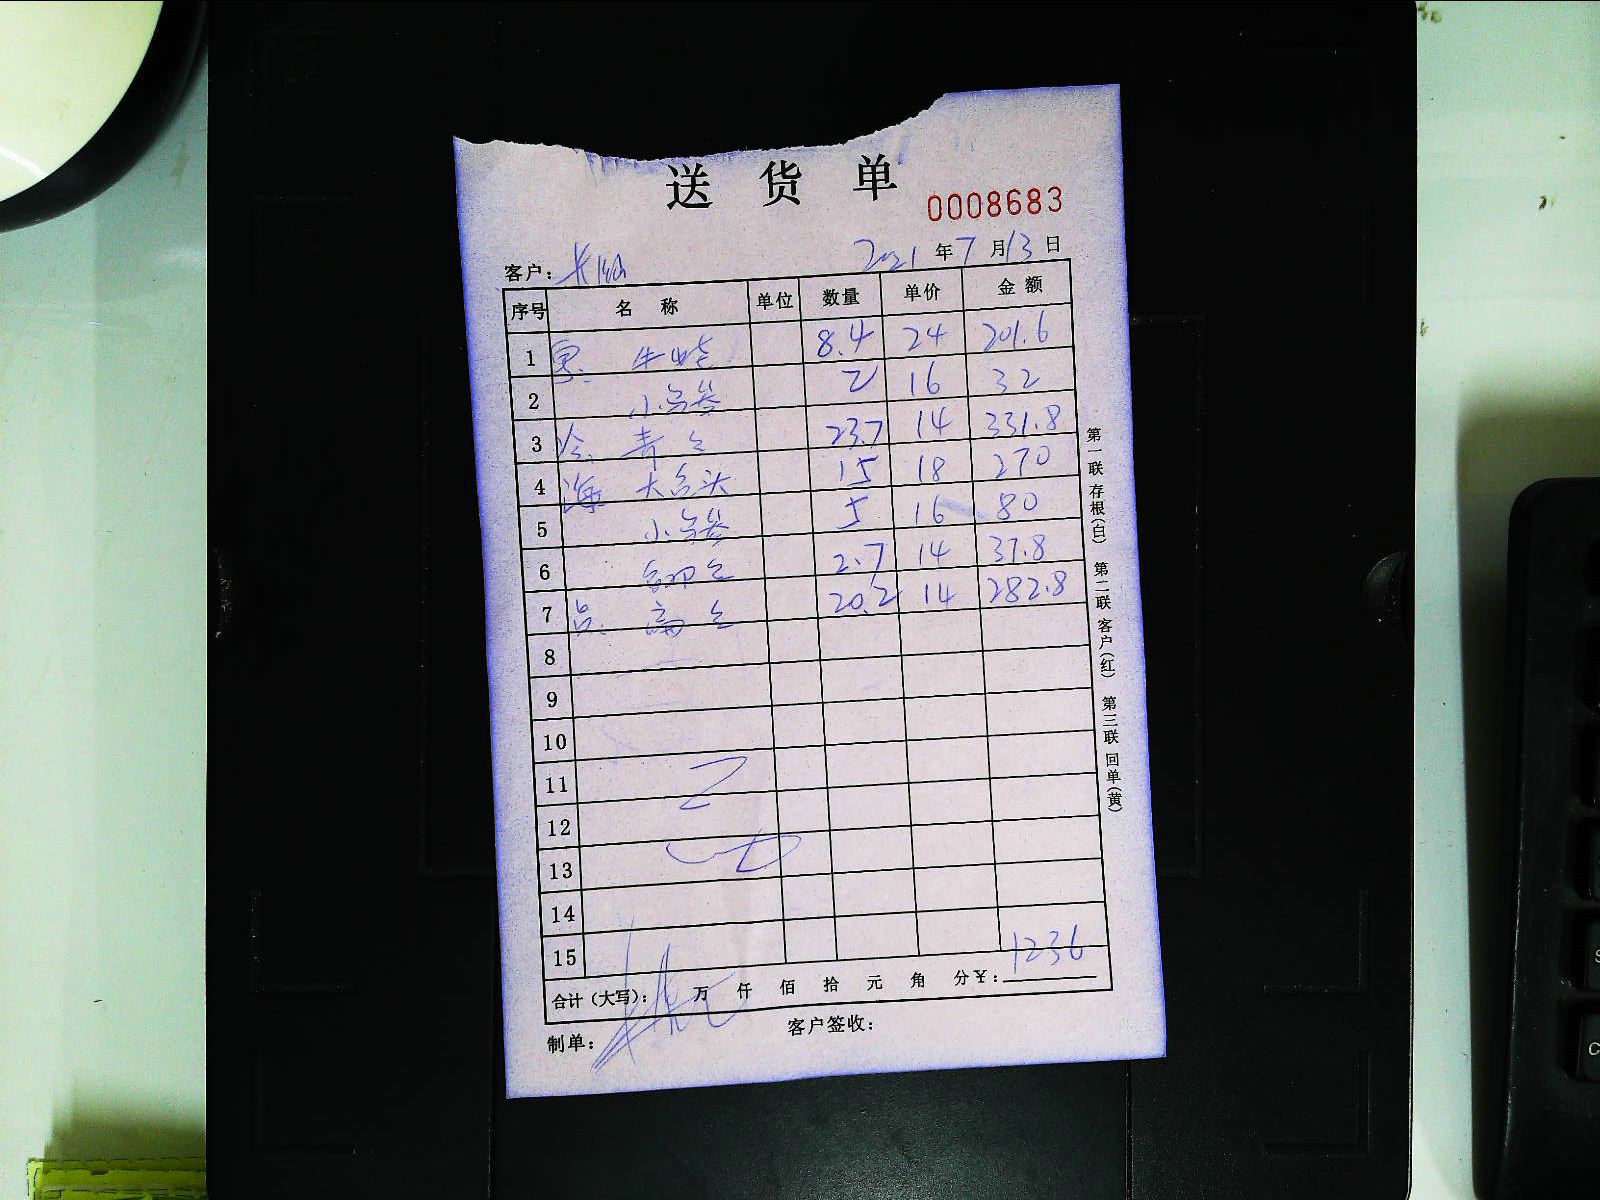 送 货 单
0008683
客户： 2021 年 7 月 13 日
序号 名 称 单位 数量 单价 金 额
1 牛蛙 8.4 24 201.6
2 小 2 16 32
3 青 23.7 14 331.8
4 海 大 头 15 18 270
5 小 5 16 80
6 2.7 14 37.8
7 20.2 14 282.8
8
9
10
11
12
13
14
15
合计（大写）： 万 仟 佰 拾 元 角 分￥：1236
制单： 客户签收：
第一联 存根(白) 第二联 客户(红) 第三联 回单(黄)